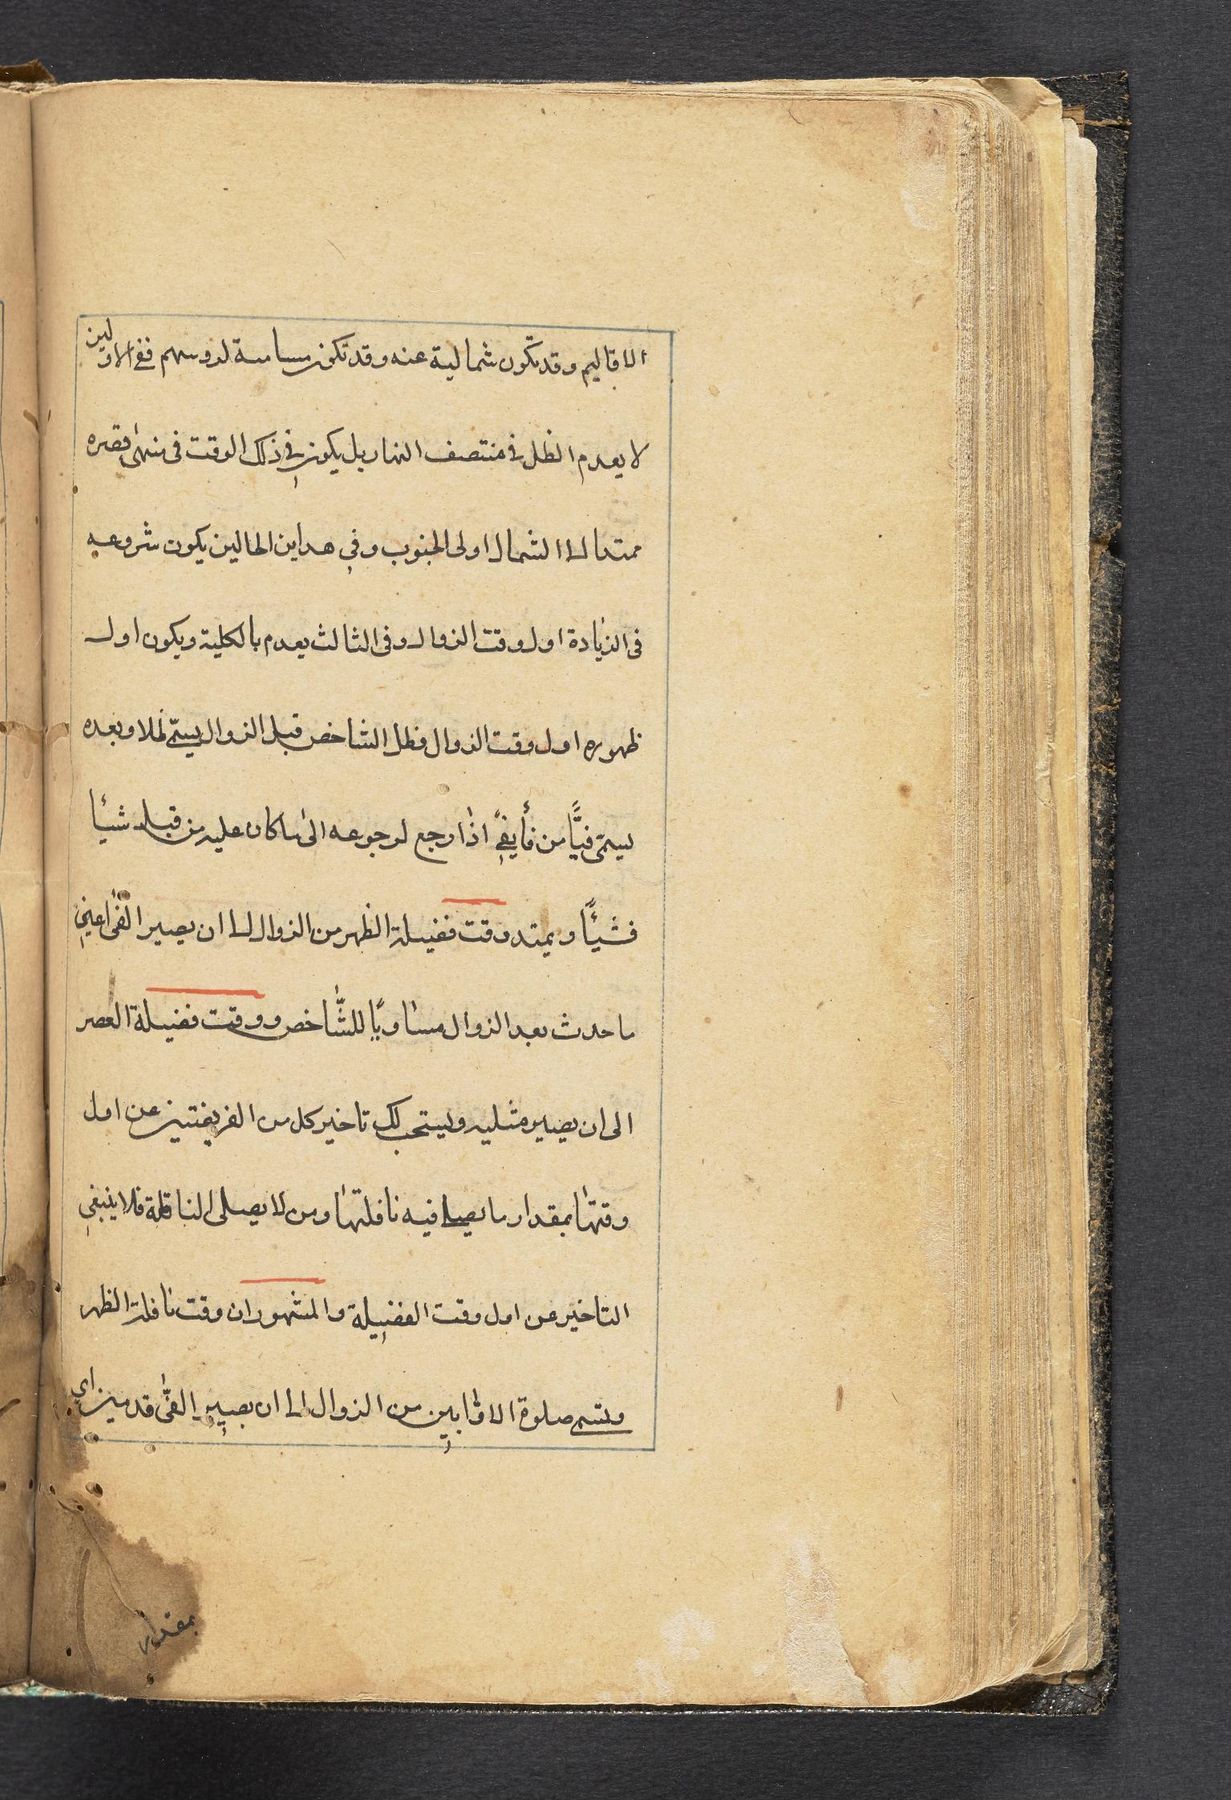 الاقاليم وقد تكون شمالية عنه وقد تكون مسامتة لروسهم ففي الاولين
لا يعدم الظل في منتصف النهار بل يكون في ذلك الوقت في منتهى قصره
ممتدا الى الشمال او لى الجنوب وفي هداين الحالين يكون شروعه
فى الزيادة اول وقت الزوال وفى الثالث يعدم بالكلية ويكون اول
ظهوره اول وقت الزوال فظل الشاخص قبل الزوال يسمى ظلا وبعده
يسمى فيًّا من فأيفئ اذا رجع لرجوعه الى ما كان عليه من قبل شيأ
فشيئًا ويمتد وقت فضيلة الظهر من الزوال الى ان يصير الفئ اعنى
ما حدث بعد الزوال مساويًا للشّاخص ووقت فضيلة العصر
الى ان يصير مثليه ويستحب لك تاخير كل من الفريضتين عن اول
وقتها بمقدار ما يصلى فيه نافلتها ومن لا يصلى النافلة فلا ينبغي
التاخير عن اول وقت الفضيلة والمشهور ان وقت نافلة الظهر
وتسم صلوة الاوّابين من الزوال الى ان يصير الفئ قدمين اي
بمقدار